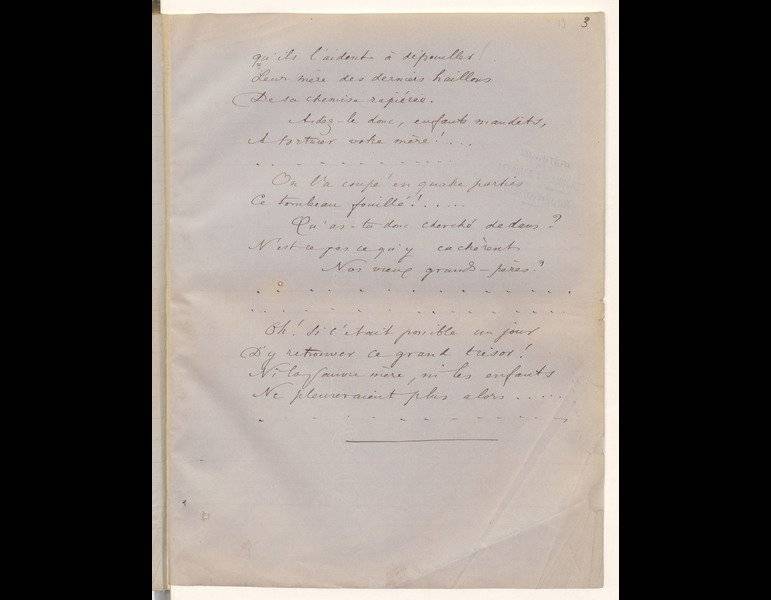 3
qu'ils l'aident à dépouiller
Leur mère des derniers haillons
De sa chemise rapiécée.
Aidez-le donc, enfants maudits,
A torturer votre mère! . . .
. . . . . . . . . . . . .
On l'a coupé en quatre parties
Ce tombeau fouillé! . . . . .
Qu'as-tu donc cherché dedans?
N'est ce pas ce qu'y cachèrent
Nos vieux grands-pères?
. . . . . . . . . . . . . . .
. . . . . . . . . . . . . . .
Oh! Si c'était possible un jour
D'y retrouver ce grand trésor!
Ni la pauvre mère, ni les enfants
Ne pleureraient plus alors . . . . .
. . . . . . . . . . . . . .